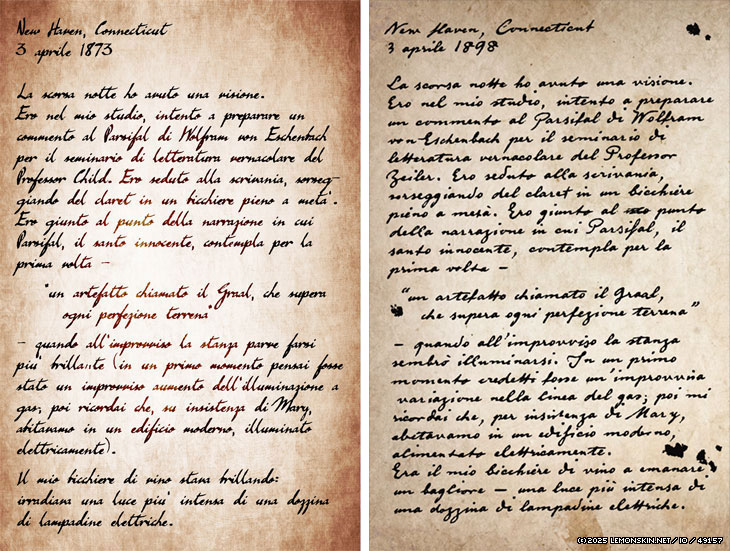 New Haven, Connecticut
3 aprile 1873
La scorsa notte ho avuto una visione.
Ero nel mio studio, intento a preparare un
commento al Parsifal di Wolfram von Eschenbach
per il seminario di letteratura vernacolare del
Professor Child. Ero seduto alla scrivania, sorseg-
giando del claret in un bicchiere pieno a metà.
Ero giunto al punto della narrazione in cui
Parsifal, il santo innocente, contempla per la
prima volta –
"un artefatto chiamato il Graal, che supera
ogni perfezione terrena"
– quando all'improvviso la stanza parve farsi
più brillante (in un primo momento pensai fosse
stato un improvviso aumento dell'illuminazione a
gas; poi ricordai che, su insistenza di Mary,
abitavamo in un edificio moderno, illuminato
elettricamente).
Il mio bicchiere di vino stava brillando:
irradiava una luce più intensa di una dozzina
di lampadine elettriche.
New Haven, Connecticut
3 aprile 1898
La scorsa notte ho avuto una visione.
Ero nel mio studio, intento a preparare
un commento al Parsifal di Wolfram
von Eschenbach per il seminario di
letteratura vernacolare del Professor
Zeiler. Ero seduto alla scrivania,
sorseggiando del claret in un bicchiere
pieno a mesà. Ero giunto al punto
della narrazione in cui Parsifal, il
santo innocente, contempla per la
prima volta –
"un artefatto chiamato il Graal,
che supera ogni perfezione terrena"
– quando all'improvviso la stanza
sembrò illuminarsi. In un primo
momento credetti fosse un'improvvisa
variazione nella linea del gas; poi mi
ricordai che, per insistenza di Mary,
abitavamo in un edificio moderno,
alimentato elettricamente.
Era il mio bicchiere di vino a emanare
un bagliore – una luce più intensa di
una dozzina di lampadine elettriche.
(c) 2025 LEMONSKIN.NET / IO / 49157